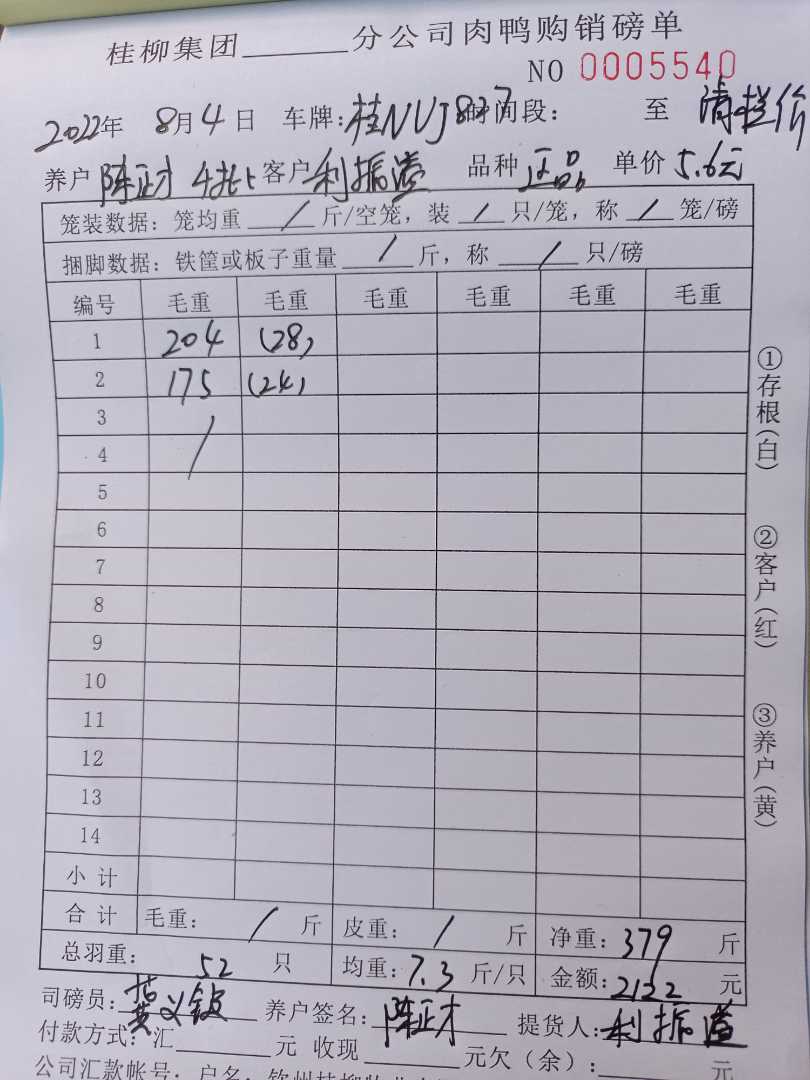 桂柳集团______分公司肉鸭购销磅单
NO 0005540
2022年 8月4日 车牌:桂NUJ827 时间段: 至 清栏价
养户 陈正才 4批 客户 利振 品种 正品 单价 5.6元
笼装数据:笼均重 / 斤/空笼,装 / 只/笼,称 / 笼/磅
捆脚数据:铁筐或板子重量 / 斤,称 / 只/磅
编号 毛重 毛重 毛重 毛重 毛重 毛重
1 204 (28)
2 175 (24)
3 /
4
5
6
7
8
9
10
11
12
13
14
小计
合计 毛重: / 斤 皮重: / 斤 净重:379 斤
总羽重: 52 只 均重:7.3 斤/只 金额:2122 元
司磅员:黄义 养户签名:陈正才 提货人:利振
付款方式:汇______元 收现______元欠(余):______元
公司汇款帐号:户名:钦州桂柳牧业
①存根(白) ②客户(红) ③养户(黄)